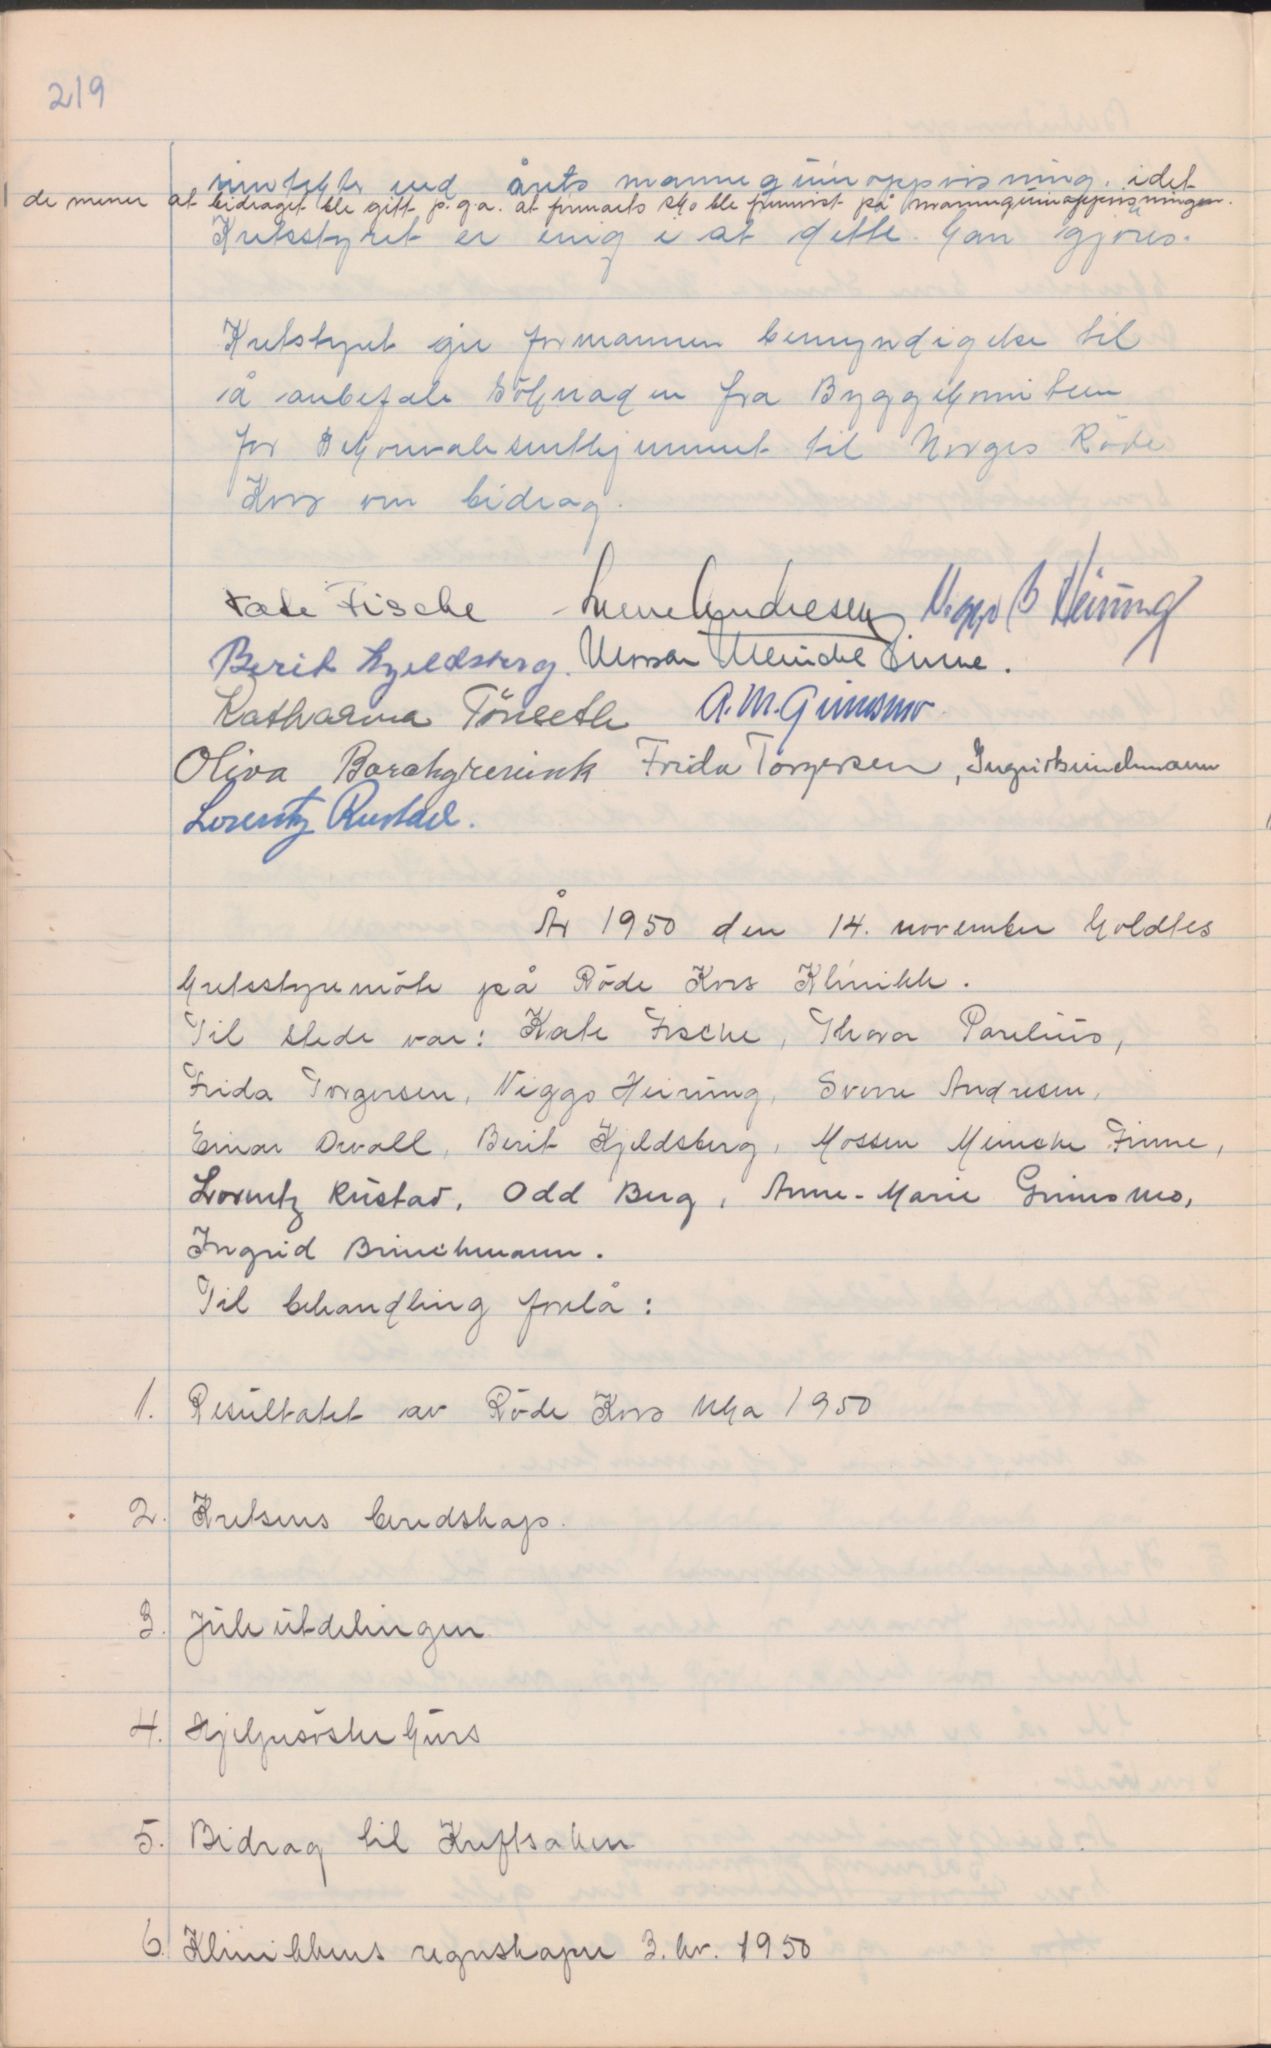 219
inntekter ved årets mannequinoppvisning, idet
de mener at bidraget ble gitt p.g.a. at firmaets sko ble fremvist på mannequinoppvisningen.
Kretsstyret er enig i at dette kan gjøres.
Kretsstyret gir formannen bemyndigelse til
å anbefale söknaden fra Byggekomiteen
for Rekonvalesenthjemmet til Norges Röde
Kors om bidrag.
Kate Fische Sverre Andresen Viggo B Heiring
Berit Kjeldsberg. Mossen Meincke Finne.
Katharina Tönseth A. M. Grimsmo
Oliva Borchgrevink Frida Torgersen, Ingrid Brinchmann
Lorentz Rustad.
År 1950 den 14. november holdtes
kretsstyremöte på Röde Kors Klinikk.
Til stede var: Kate Fische, Thora Parelius,
Frida Torgersen, Viggo Heiring, Sverre Andresen,
Einar Orvall, Berit Kjeldsberg, Mossen Meincke Finne,
Lorentz Rustad, Odd Berg, Anne-Marie Grimsmo,
Ingrid Brinchmann.
Til behandling forelå:
1. Resultatet av Röde Kors Uka 1950
2. Kretsens beredskap.
3. Juleutdelingen
4. Hjelpesösterkurs
5. Bidrag til Kreftsaken
6. Klinikkens regnskaper 3. kv. 1950